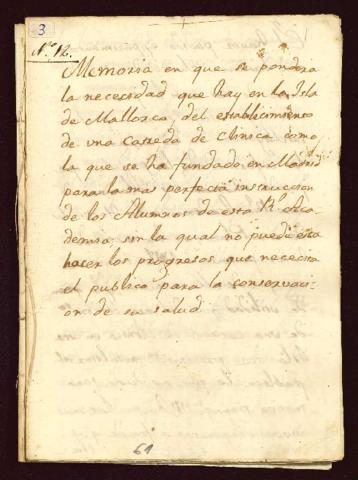 3
N.º 12.
Memoria en que se pondera
la nececidad que hay en la Isla
de Mallorca del establecimiento
de una Catreda de Clinica como
la que se ha fundado en Madrid
para la mas perfecta instruccion
de los Alumnos de esta Rl Aca
demia sin la qual no puede esta
hacer los progresos que necesita
el publico para la conservaci-
on de su salud
61